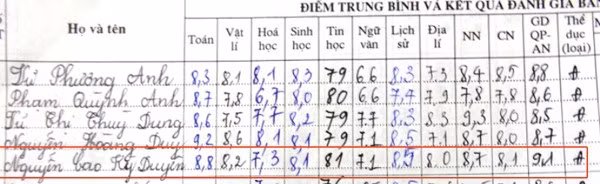 ĐIỂM TRUNG BÌNH VÀ KẾT QUẢ ĐÁNH GIÁ BA
Họ và tên Toán Vật lí Hoá học Sinh học Tin học Ngữ văn Lịch sử Địa lí NN CN GD QP-AN Thể dục (loại)
Từ Phương Anh 8,3 8,1 8,1 8,3 79 6.6 8,3 7.3 8,4 8,5 8,8 Đ
Phạm Quỳnh Anh 8,7 7,8 6,7 8,0 80 6.6 7,4 7.9 7,8 7,8 8,6 Đ
Từ Thị Thuỳ Dung 8,6 7,5 7,7 8,2 79 7.7 8.3 8.3 9,3 8.0 8,5 Đ
Nguyễn Hoàng Duy 9,2 8,6 8,1 8,1 79 7.1 8,5 7.1 8,7 8,0 8,7 Đ
Nguyễn Cao Kỳ Duyên 8,8 8,2 7,3 8,1 81 7.1 8,5 8.0 8,7 8,1 9,1 Đ